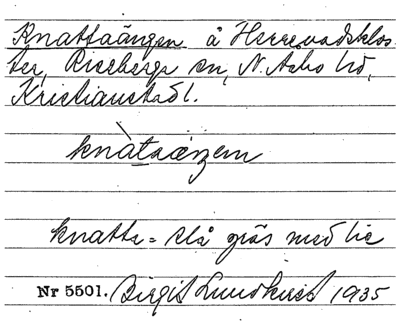 Knattaängen å Herrevadsklos-
ter, Riseberga sn, N. Åsbo hd,
Kristianstad l.
knàtaäŋem
knatta = slå gräs med lie
Nr 5501. Birgit Lundkvist 1935